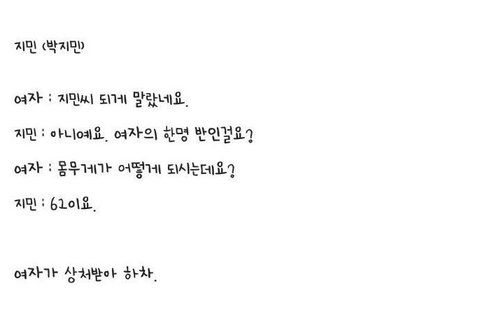 지민 (박지민)
여자 : 지민씨 되게 말랐네요.
지민 : 아니예요. 여자의 한명 반인걸요?
여자 : 몸무게가 어떻게 되시는데요?
지민 : 62이요.
여자가 상처받아 하차.